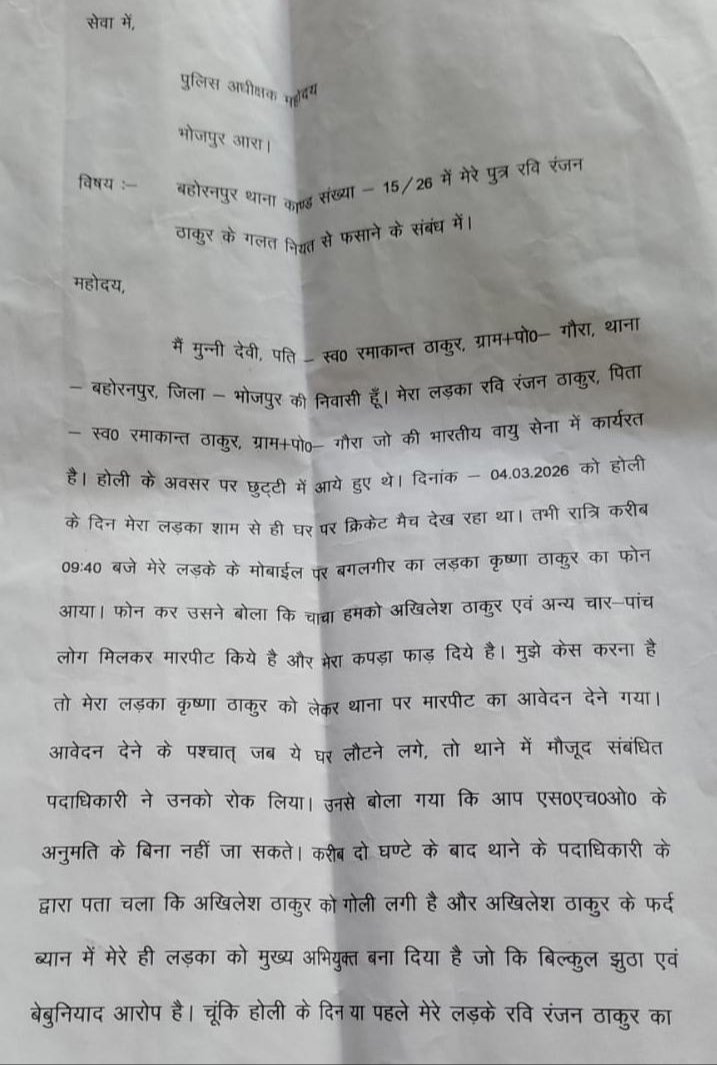 सेवा में,
पुलिस अधीक्षक महोदय
भोजपुर आरा।
विषय :– बहोरनपुर थाना काण्ड संख्या – 15/26 में मेरे पुत्र रवि रंजन
ठाकुर के गलत नियत से फसाने के संबंध में।
महोदय,
मैं मुन्नी देवी, पति – स्व0 रमाकान्त ठाकुर, ग्राम+पो0– गौरा, थाना
– बहोरनपुर, जिला – भोजपुर की निवासी हूँ। मेरा लड़का रवि रंजन ठाकुर, पिता
– स्व0 रमाकान्त ठाकुर, ग्राम+पो0– गौरा जो की भारतीय वायु सेना में कार्यरत
है। होली के अवसर पर छुट्टी में आये हुए थे। दिनांक – 04.03.2026 को होली
के दिन मेरा लड़का शाम से ही घर पर क्रिकेट मैच देख रहा था। तभी रात्रि करीब
09:40 बजे मेरे लड़के के मोबाईल पर बगलगीर का लड़का कृष्णा ठाकुर का फोन
आया। फोन कर उसने बोला कि चाचा हमको अखिलेश ठाकुर एवं अन्य चार–पांच
लोग मिलकर मारपीट किये है और मेरा कपड़ा फाड़ दिये है। मुझे केस करना है
तो मेरा लड़का कृष्णा ठाकुर को लेकर थाना पर मारपीट का आवेदन देने गया।
आवेदन देने के पश्चात् जब ये घर लौटने लगे, तो थाने में मौजूद संबंधित
पदाधिकारी ने उनको रोक लिया। उनसे बोला गया कि आप एस0एच0ओ0 के
अनुमति के बिना नहीं जा सकते। करीब दो घण्टे के बाद थाने के पदाधिकारी के
द्वारा पता चला कि अखिलेश ठाकुर को गोली लगी है और अखिलेश ठाकुर के फर्द
ब्यान में मेरे ही लड़का को मुख्य अभियुक्त बना दिया है जो कि बिल्कुल झुठा एवं
बेबुनियाद आरोप है। चूंकि होली के दिन या पहले मेरे लड़के रवि रंजन ठाकुर का